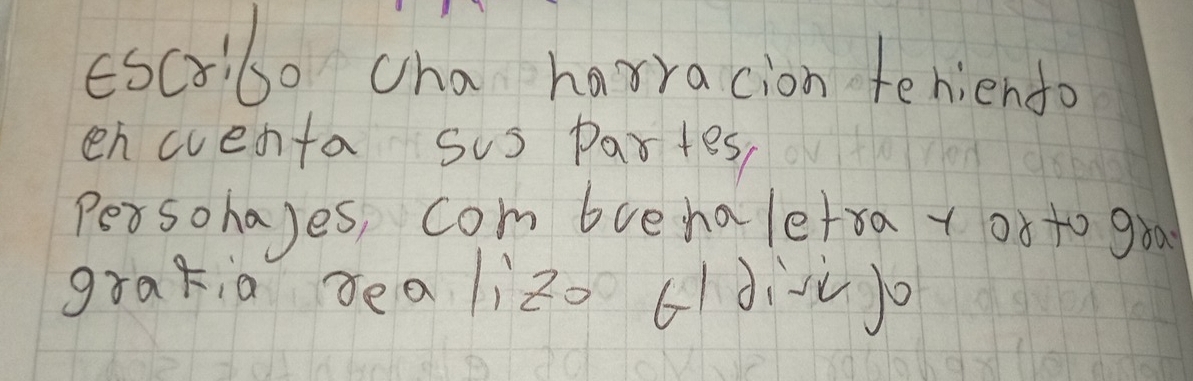 Escribo una narracion teniendo
en cuenta sus Partes,
Personajes, com buena letra y ortogra
grafia realizo el